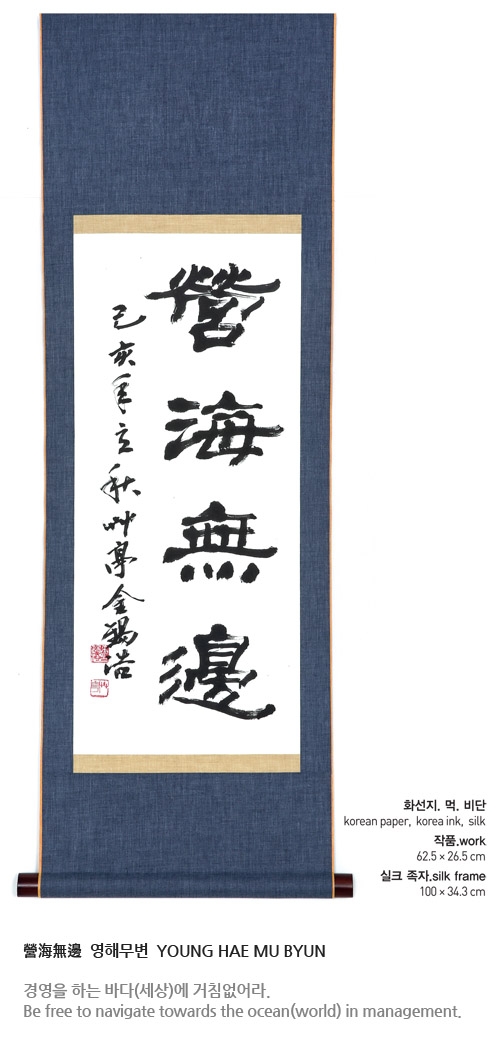 營海無邊
己亥年立秋 艸亭 金錫浩
화선지. 먹. 비단
korean paper, korea ink, silk
작품.work
62.5 × 26.5 cm
실크 족자.silk frame
100 × 34.3 cm
營海無邊 영해무변 YOUNG HAE MU BYUN
경영을 하는 바다(세상)에 거침없어라.
Be free to navigate towards the ocean(world) in management.